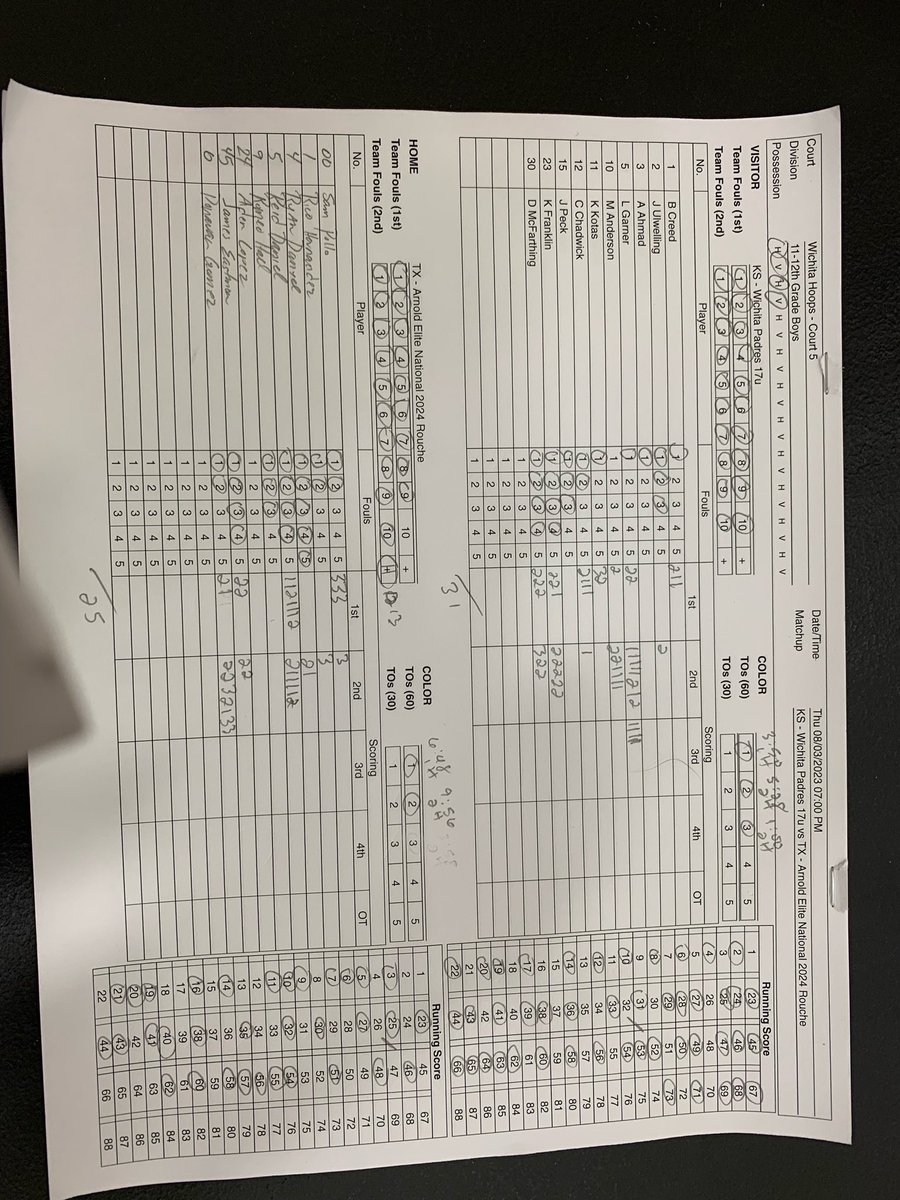 Court Wichita Hoops - Court 5 Date/Time Thu 08/03/2023 07:00 PM
Division 11-12th Grade Boys Matchup KS - Wichita Padres 17u vs TX - Arnold Elite National 2024 Rouche
Possession H V H V H V H V H V H V H V H V
VISITOR KS - Wichita Padres 17u COLOR
Team Fouls (1st) 1 2 3 4 5 6 7 8 9 10 + TOs (60) 1 2 3 4 5
Team Fouls (2nd) 1 2 3 4 5 6 7 8 9 10 + TOs (30) 1 2 3 4 5
No. Player Fouls 1st 2nd Scoring 3rd 4th OT
1 B Creed 1 2 3 4 5 211
2 J Ulwelling 1 2 3 4 5 2
3 A Ahmad 1 2 3 4 5
5 L Garner 1 2 3 4 5 22
10 M Anderson 1 2 3 4 5 2
11 K Kotas 1 2 3 4 5
12 C Chadwick 1 2 3 4 5 2111 1
15 J Peck 1 2 3 4 5
23 K Franklin 1 2 3 4 5 221 22222
30 D McFarthing 1 2 3 4 5 222 322
1 2 3 4 5
1 2 3 4 5
1 2 3 4 5
1 2 3 4 5
31
Running Score
1 23 45 67
2 24 46 68
3 25 47 69
4 26 48 70
5 27 49 71
6 28 50 72
7 29 51 73
8 30 52 74
9 31 53 75
10 32 54 76
11 33 55 77
12 34 56 78
13 35 57 79
14 36 58 80
15 37 59 81
16 38 60 82
17 39 61 83
18 40 62 84
19 41 63 85
20 42 64 86
21 43 65 87
22 44 66 88
HOME TX - Arnold Elite National 2024 Rouche COLOR
Team Fouls (1st) 1 2 3 4 5 6 7 8 9 10 + TOs (60) 1 2 3 4 5
Team Fouls (2nd) 1 2 3 4 5 6 7 8 9 10 13 TOs (30) 1 2 3 4 5
No. Player Fouls 1st 2nd Scoring 3rd 4th OT
00 Sam 1 2 3 4 5 333 3
1 Rico Hernandez 1 2 3 4 5 3
4 Ryan Daniel 1 2 3 4 5 21
5 Reid Daniel 1 2 3 4 5
9 Hall 1 2 3 4 5
24 Aden Lopez 1 2 3 4 5
45 James Eastman 1 2 3 4 5 22 22
0 Donovan Gomez 1 2 3 4 5
1 2 3 4 5
1 2 3 4 5
1 2 3 4 5
1 2 3 4 5
25
Running Score
1 23 45 67
2 24 46 68
3 25 47 69
4 26 48 70
5 27 49 71
6 28 50 72
7 29 51 73
8 30 52 74
9 31 53 75
10 32 54 76
11 33 55 77
12 34 56 78
13 35 57 79
14 36 58 80
15 37 59 81
16 38 60 82
17 39 61 83
18 40 62 84
19 41 63 85
20 42 64 86
21 43 65 87
22 44 66 88